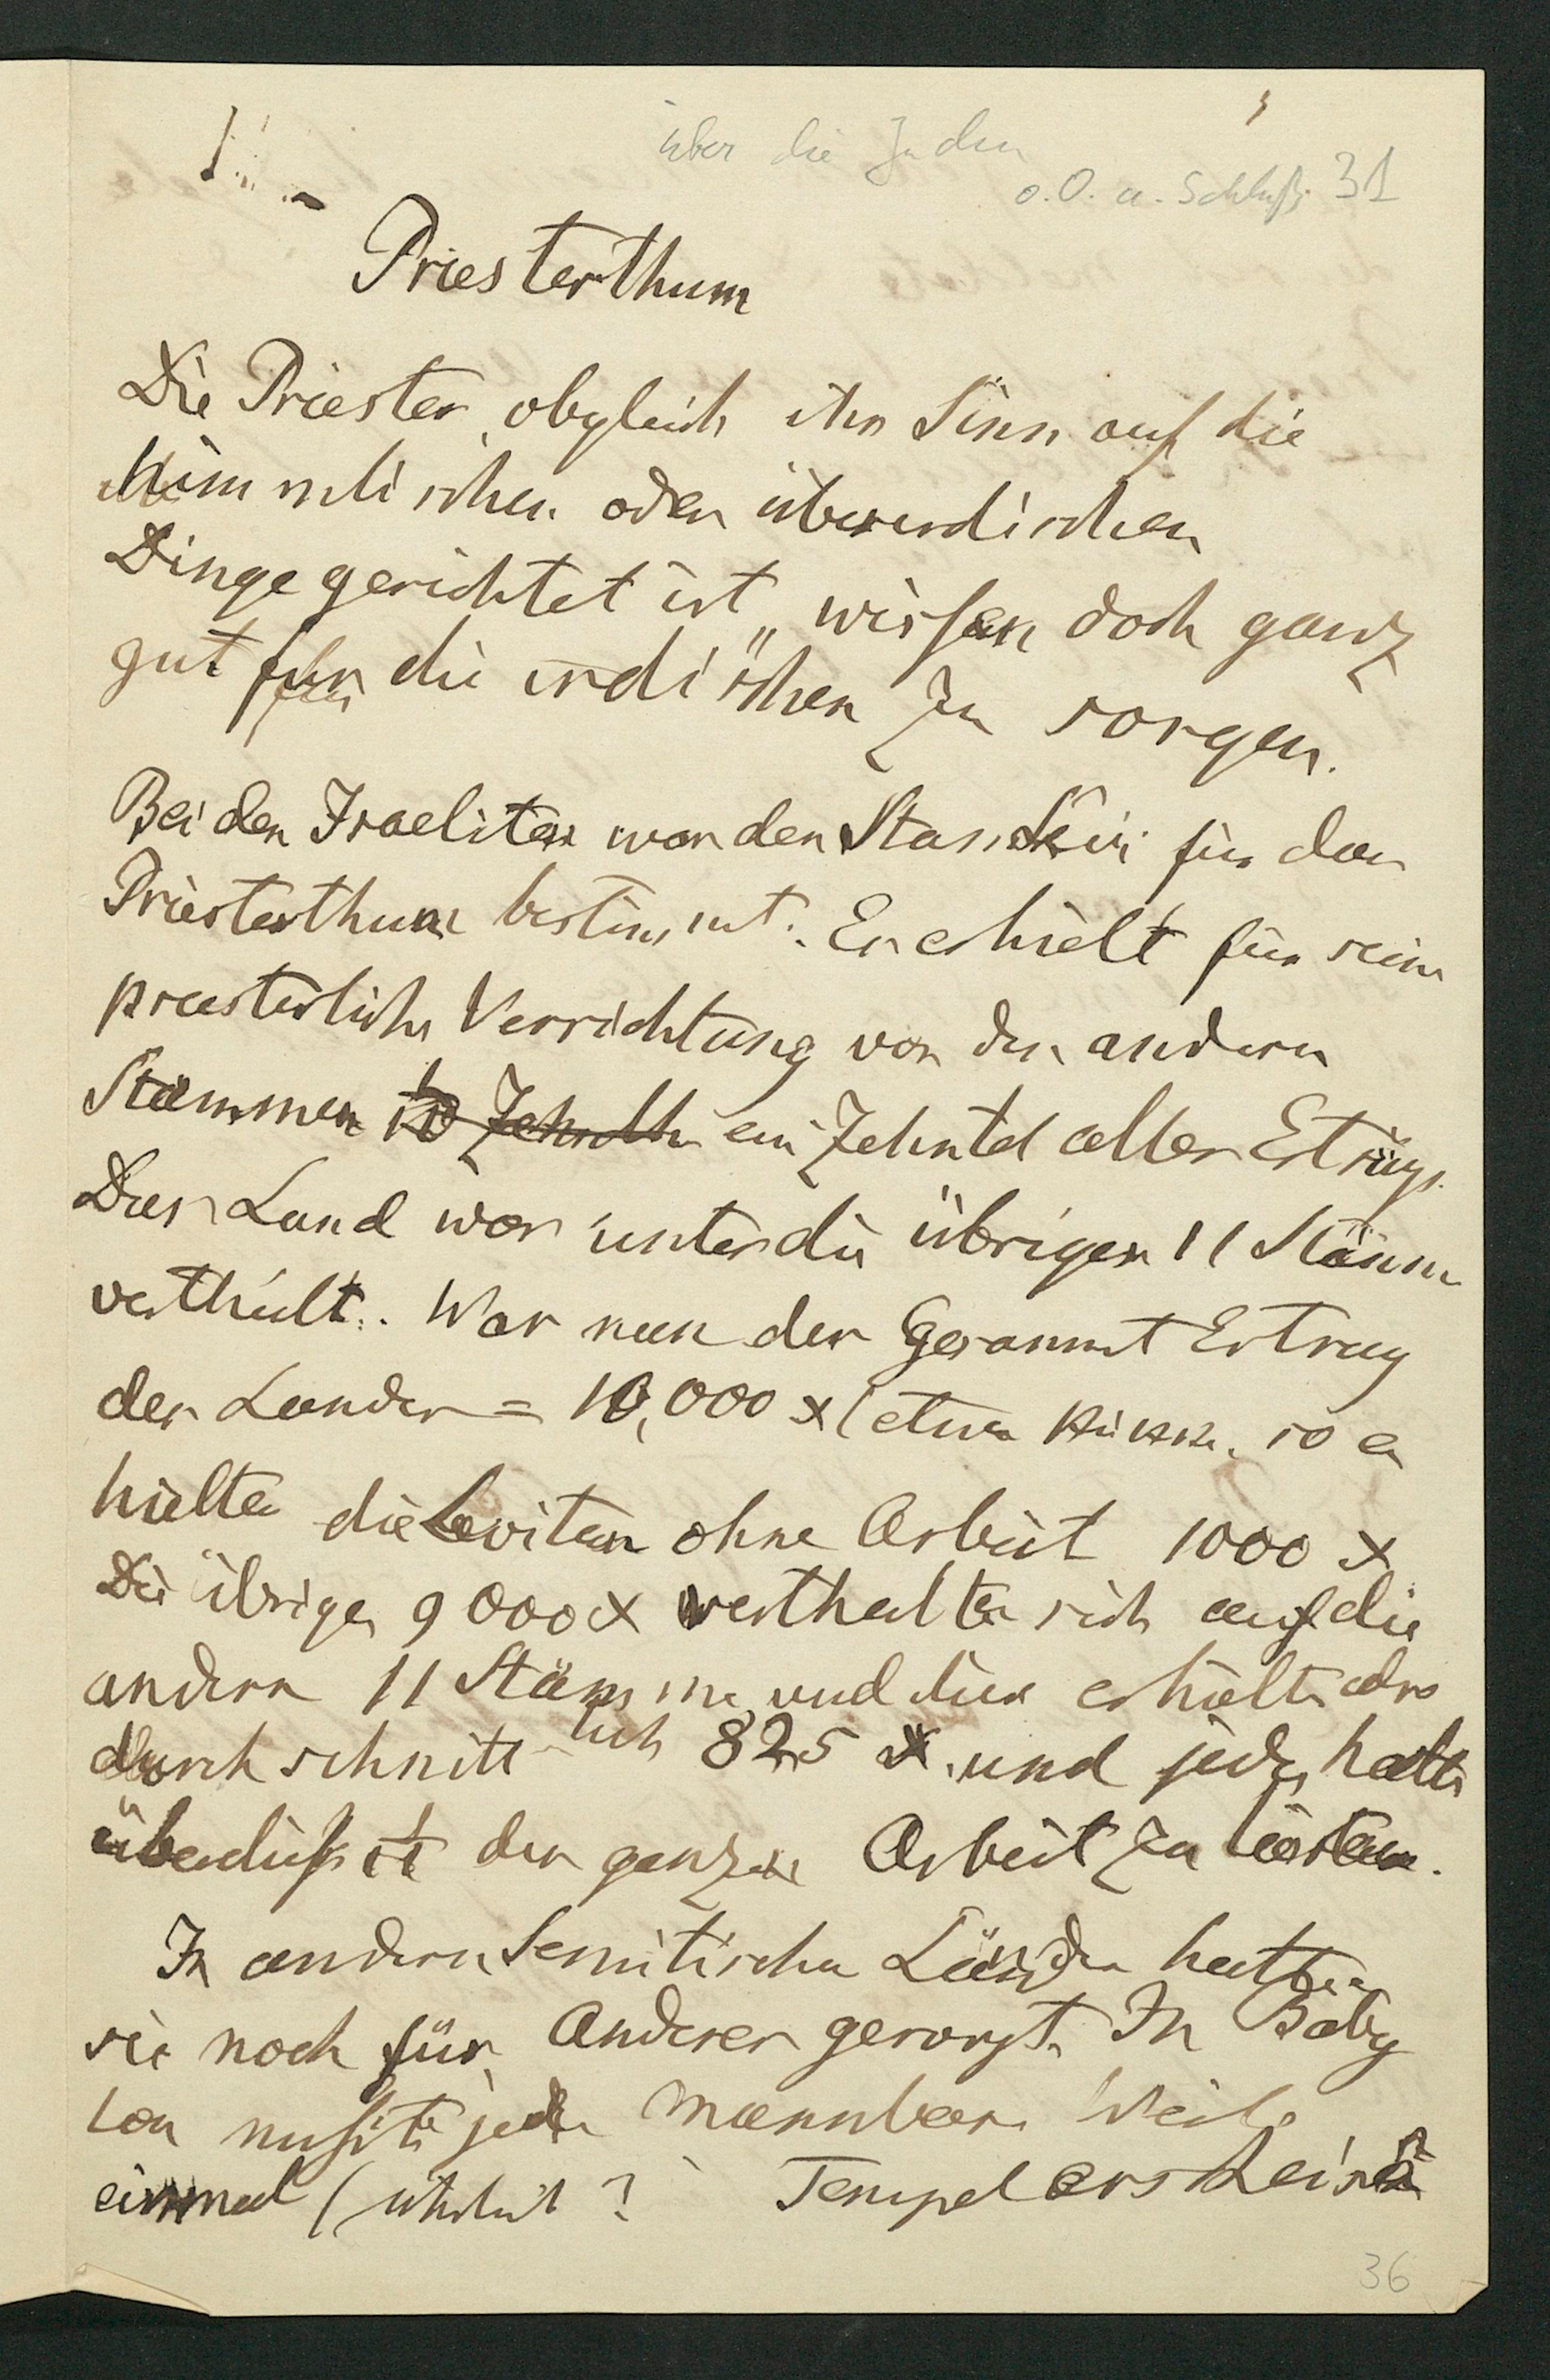 über die Juden
o. O. u. Schluß. 31
Priesterthum
Die Priester, obgleich ihr Sinn auf die
himmlischen oder überirdischen
Dinge gerichtet ist, wissen doch ganz
gut für die irdischen zu sorgen.
Bei den Israeliten war der Stam Levi für das
Priesterthum bestimmt. Er erhielt für seine
priesterliche Verrichtung von den andern
Stämmen ein Zehntel aller Erträge.
Das Land war unter die übrigen 11 Stämme
vertheilt. War nun der Gesammt Ertrag
des Landes = 10,000 x (etwa so er
hielten die Leviten ohne Arbeit 1000 x
Die übrigen 9000 x vertheilten sich auf die
andern 11 Stämme und diese erhielten also
durchschnittlich 825 x. und jeder hatte
überdieß 1/11 der ganzen Arbeit zu leisten.
In andern Semitischen Ländern hatten
sie noch für Anderes gesorgt. In Baby
lon mußte jedes mannbare Weib
einmal ( ? Tempel
36